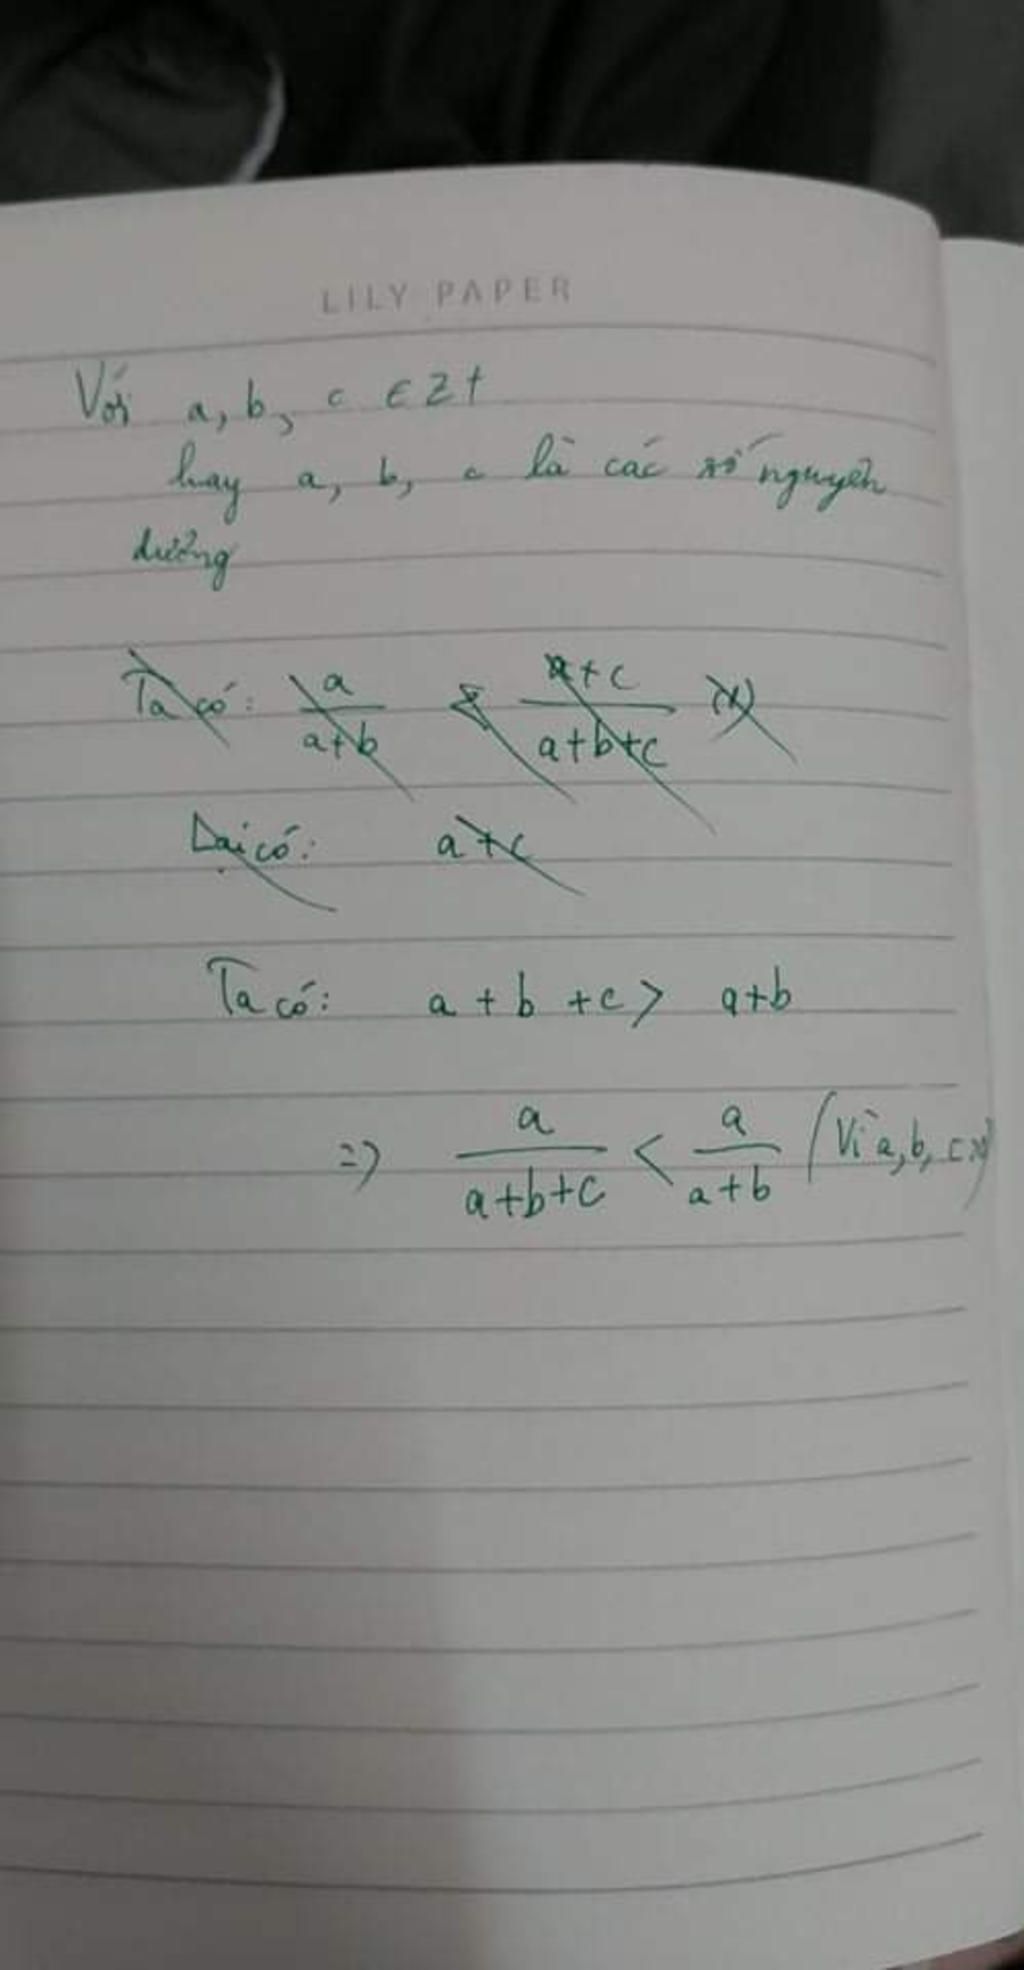 LILY PAPER
Với a, b, c ∈ Z+
hay a, b, c là các số nguyên
dương
Ta có: a/(a+b) < (a+c)/(a+b+c)
Lại có: a+c
Ta có: a + b + c > a+b
=> a/(a+b+c) < a/(a+b) (Vì a, b, c >0)